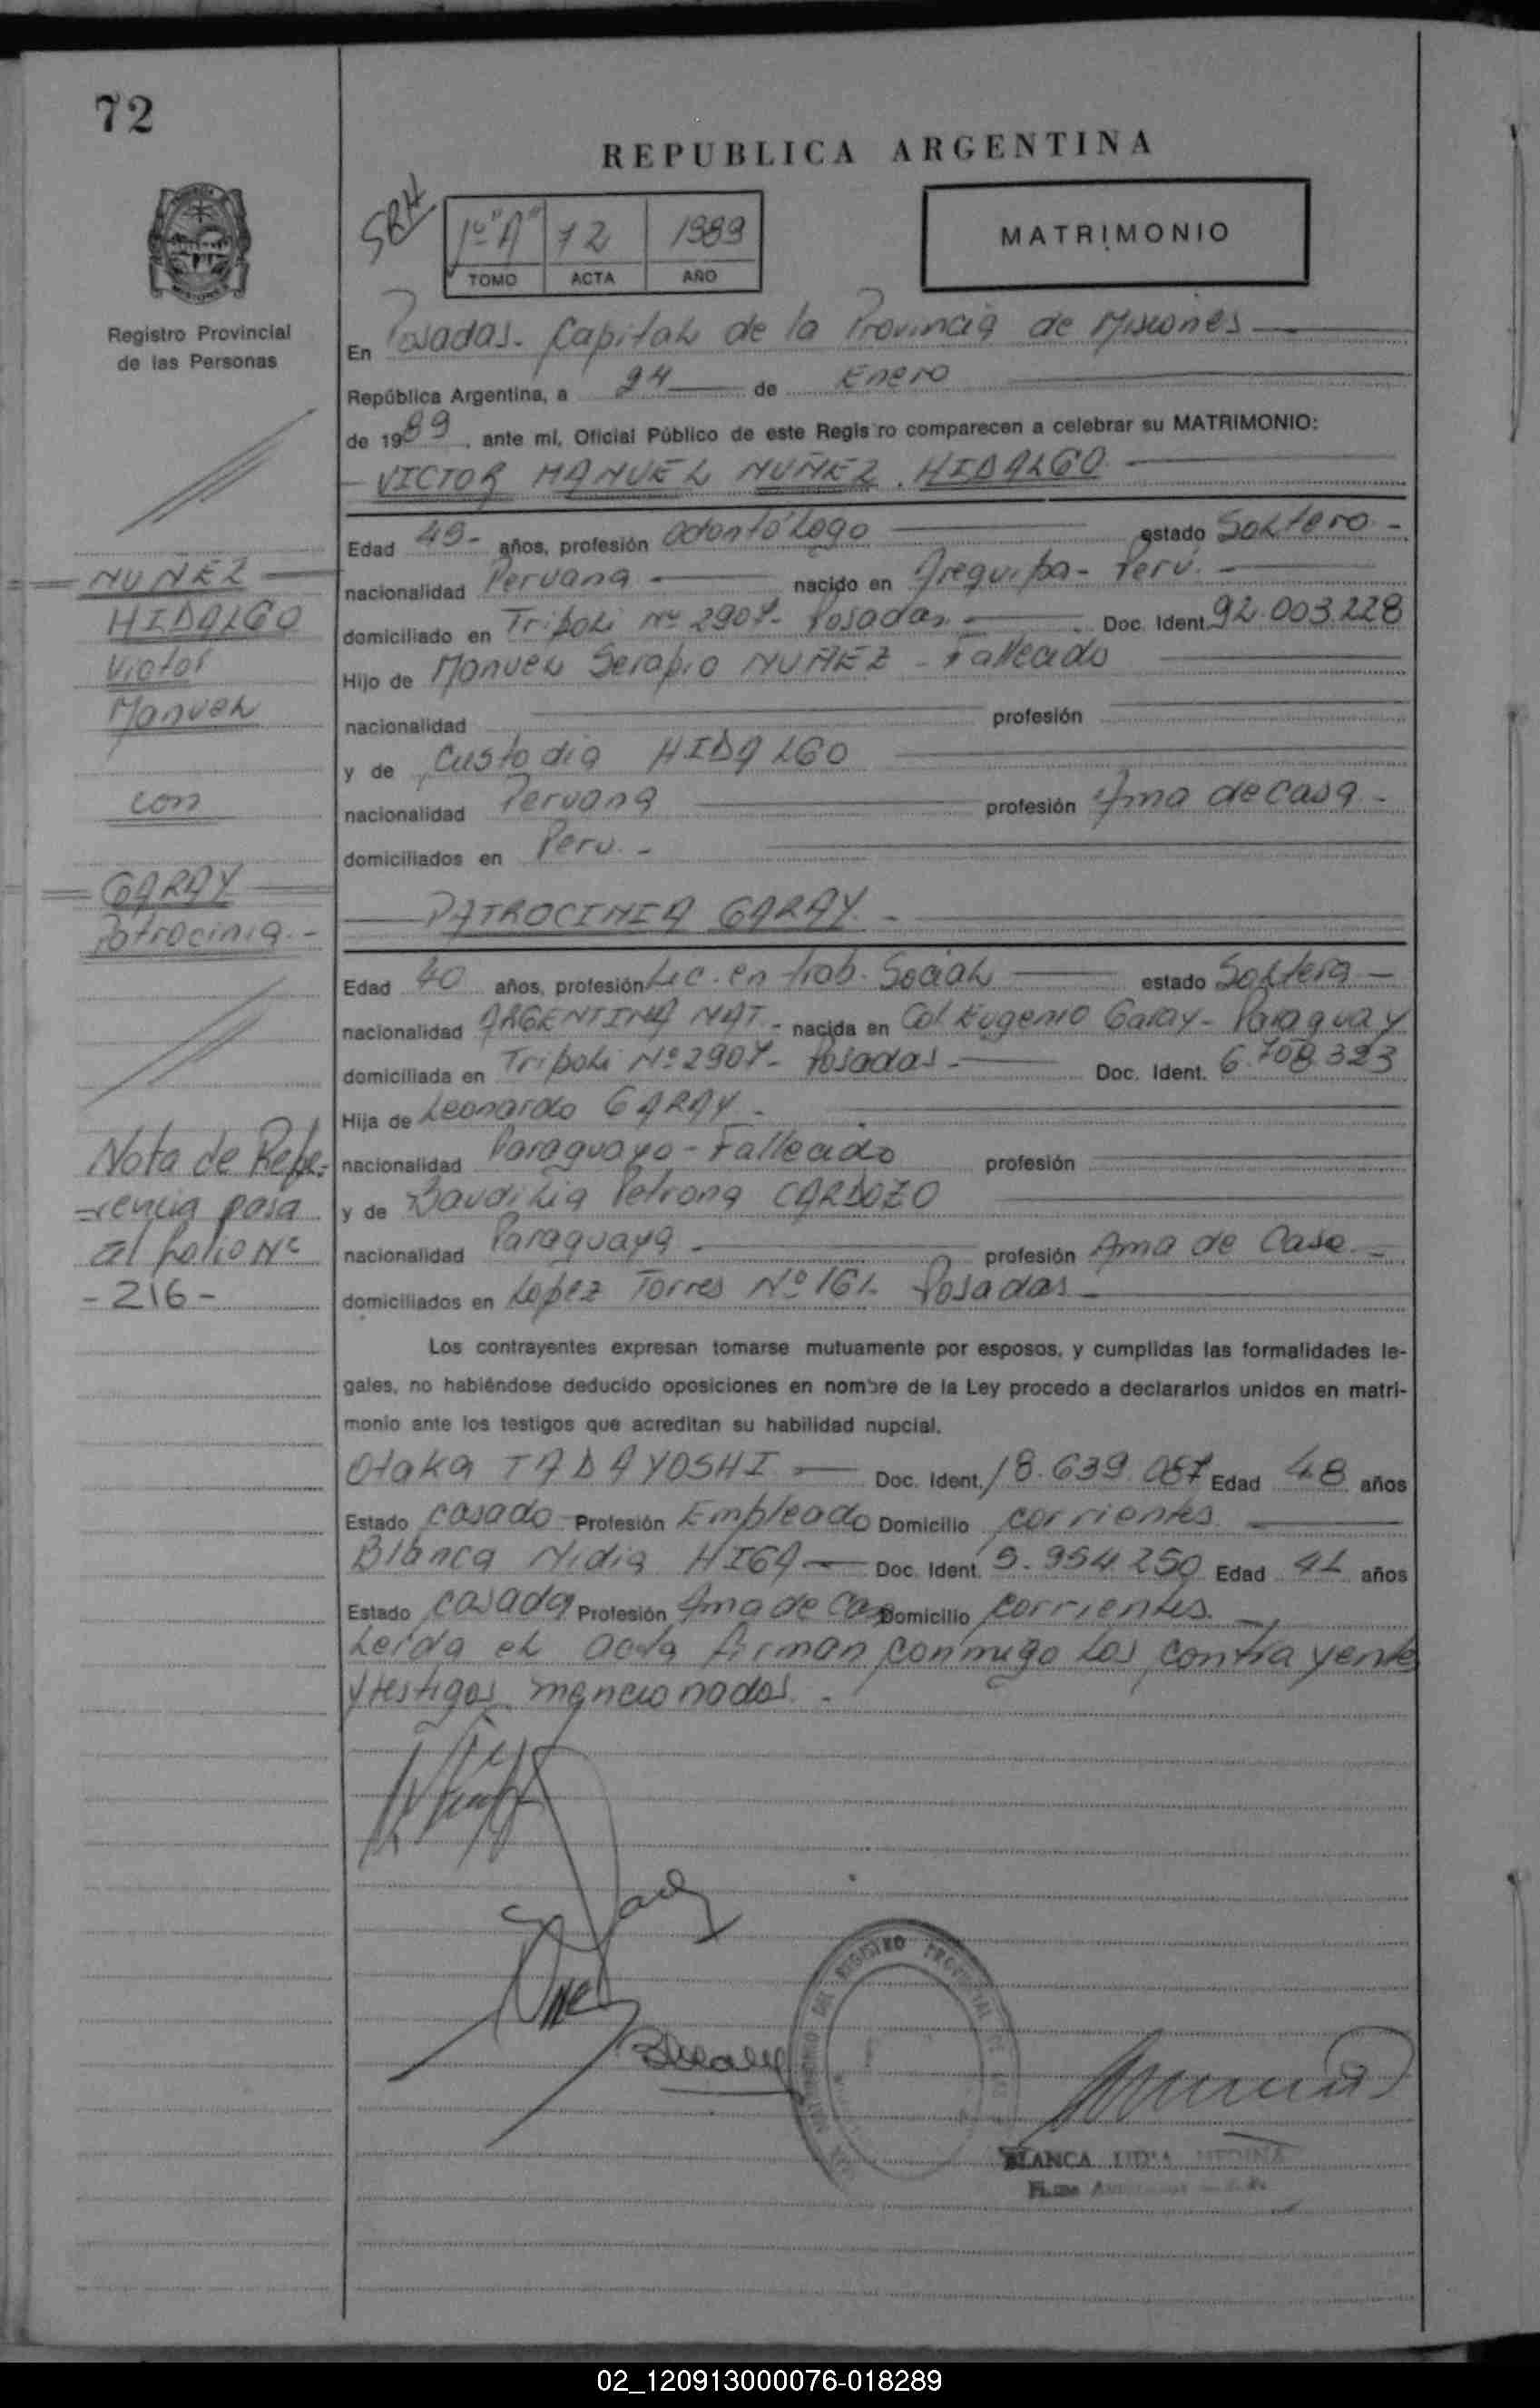 72
REPUBLICA ARGENTINA
SRH
1º "A" 72 1989
TOMO ACTA AÑO
MATRIMONIO
Registro Provincial
de las Personas
En Posadas. Capital de la Provincia de Misiones
República Argentina, a 24 de Enero
de 1989, ante mí, Oficial Público de este Regis ro comparecen a celebrar su MATRIMONIO:
VICTOR MANUEL NUÑEZ HIDALGO
Edad 45- años, profesión Odontólogo estado Soltero -
nacionalidad Peruana - nacido en Arequipa - Perú. -
domiciliado en Tripoli Nº 2907- Posadas. - Doc. Ident. 92.003.228
Hijo de Manuel Serapio NUÑEZ - Fallecido
nacionalidad profesión
y de Custodia HIDALGO
nacionalidad Peruana profesión Ama de casa -
domiciliados en Peru. -
PATROCINIA GARAY. -
Edad 40 años, profesión Lic. en trab. Social estado Soltera -
nacionalidad ARGENTINA NAT. - nacida en Col Eugenio Garay - Paraguay
domiciliada en Tripoli Nº 2907- Posadas - Doc. Ident. 6.708.323
Hija de Leonardo GARAY -
nacionalidad Paraguayo - Fallecido profesión
y de Baudilia Petrona CARDOZO
nacionalidad Paraguaya - profesión Ama de Casa -
domiciliados en Lopez Torres Nº 161. Posadas -
Los contrayentes expresan tomarse mutuamente por esposos, y cumplidas las formalidades le-
gales, no habiéndose deducido oposiciones en nombre de la Ley procedo a declararlos unidos en matri-
monio ante los testigos que acreditan su habilidad nupcial.
Otaka TADAYOSHI - Doc. Ident. 18.639.087 Edad 48 años
Estado casado Profesión Empleado Domicilio corrientes.
Blanca Nidia HIGA - Doc. Ident. 5.954.250 Edad 41 años
Estado casada Profesión Ama de Casa Domicilio corrientes. -
Leída el acta firman conmigo los contrayentes
y testigos mencionados. -
NUÑEZ
HIDALGO
Victor
Manuel
con
GARAY
Patrocinia. -
Nota de Refe-
-rencia pasa
al folio Nº
- 216 -
REGISTRO PROVINCIAL DE LAS
BLANCA LIDIA MEDINA
02_120913000076-018289